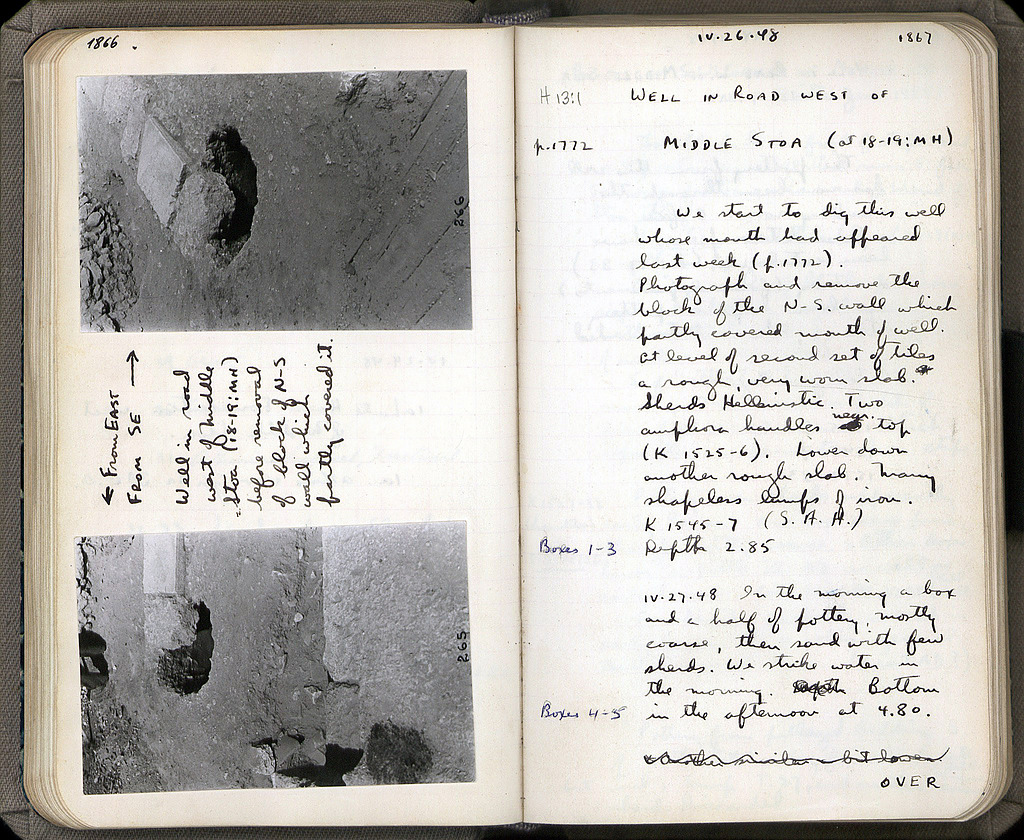 1866
266
← From EAST
From SE →
Well in road
west of Middle
Stoa (18-19:MH)
before removal
of block of N-S
wall which
partly covered it.
265
IV.26.48
1867
H 13:1 WELL IN ROAD WEST OF
p.1772 MIDDLE STOA (at 18-19:MH)
We start to dig this well
whose mouth had appeared
last week (p.1772).
Photograph and remove the
block of the N-S. wall which
partly covered mouth of well.
At level of second set of tiles
a rough, very worn slab.
Sherds Hellenistic. Two
amphora handles near top
(K 1525-6). Lower down
another rough slab. Many
shapeless lumps of iron.
K 1545-7 (S.A.H.)
Boxes 1-3 Depth 2.85
IV.27.48 In the morning a box
and a half of pottery, mostly
coarse, then sand with few
sherds. We strike water in
the morning. Bottom
Boxes 4-5 in the afternoon at 4.80.
OVER